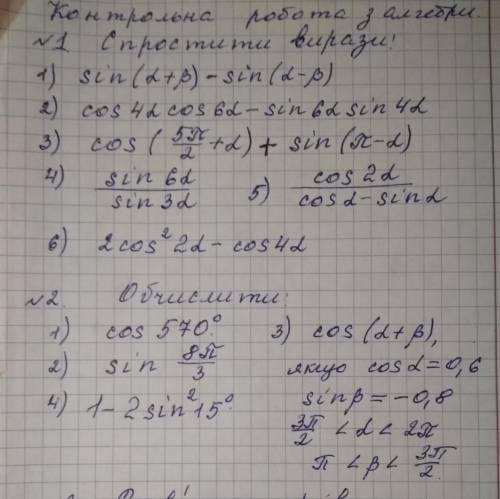 Контрольна робота з алгебри.
№1 Спростити вирази:
1) sin(α+β)-sin(α-β)
2) cos4α cos6α-sin6α sin4α
3) cos(5π/2+α)+sin(π-α)
4) sin6α/sin3α 5) cos2α/cosα-sinα
6) 2cos²2α-cos4α
№2. Обчислити:
1) cos 570°. 3) cos(α+β),
2) sin 8π/3 якщо cosα=0,6
4) 1-2sin²15° sinβ=-0,8
3π/2<α<2π
π<β<3π/2.